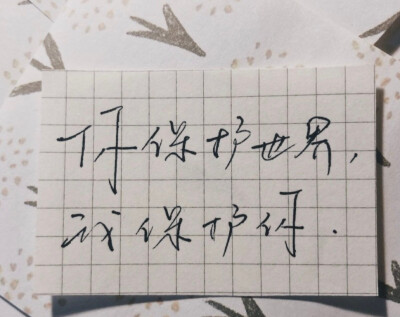 你保护世界，
我保护你.